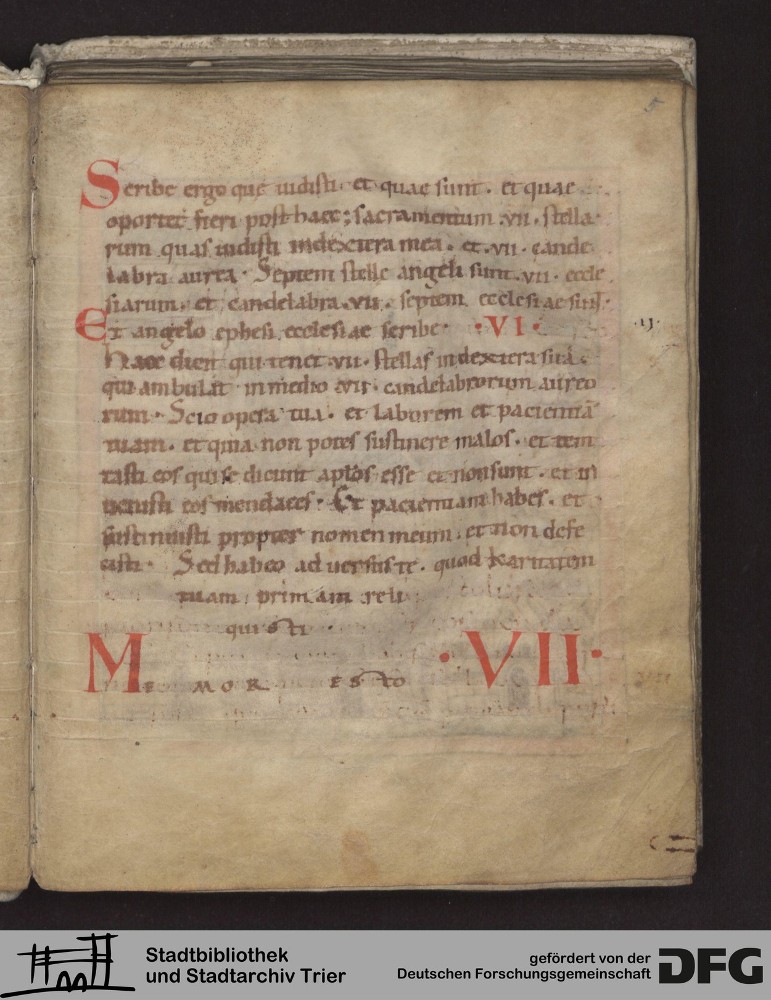 5
Scribe ergo que uidisti. et quae sunt. et quae
oportet fieri post haec; sacramentum .vii. stella
rum quas uidisti indextera mea. et .vii. cande
labra aurea. Septem stelle angeli sunt .vii. eccle
siarum. et candelabra .vii. septem ecclesiae sunt.
Et angelo ephesi ecclesiae scribe. ·VI·
.ıı.
Haec dicit qui tenet .vii. stellas indextera sua.
qui ambulat inmedio .vii. candelabrorum aureo
rum. Scio opera tua. et laborem et pacientiā
tuam. et quia non potes sustinere malos. et tem
tasti eos qui se dicunt aplos esse et nonsunt. et in
uenisti eos mendaces. Et pacientiam habes. et
sustinuisti propter nomen meum. et non defe
cisti. Sed habeo aduersus te. quod karitatem
tuam primam reli
quisti
MEMOR ESTO ·VII·
Stadtbibliothek
und Stadtarchiv Trier
gefördert von der
Deutschen Forschungsgemeinschaft
DFG